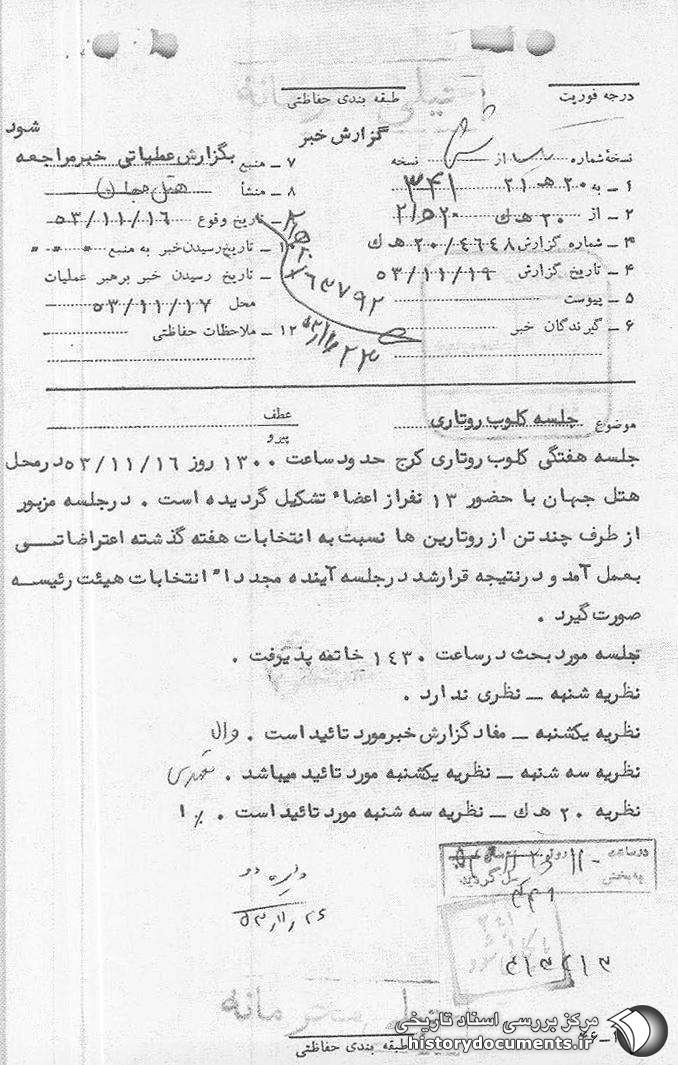 خیلی محرمانه
درجه فوریت
طبقه بندی حفاظتی
گزارش خبر
نسخهٔ شماره از نسخه
۱ ــ به ۲۰ هـ ۲۱ ۳۴۱
۲ ــ از ۲۰ هـ ك ۲۱۵۲۰
۳ ــ شماره گزارش ۲۰/۴۶۴۸ هـ ك
۴ ــ تاریخ گزارش ۵۳/۱۱/۱۹
۵ ــ پیوست
۶ ــ گیرندگان خبر
۷ ــ منبع بگزارش عملیاتی خبر مراجعه شود
۸ ــ منشأ هتل جهان
۹ ــ تاریخ وقوع ۵۳/۱۱/۱۶
۱۰ ــ تاریخ رسیدن خبر به منبع " ــ " ــ "
تاریخ رسیدن خبر برهبر عملیات
محل ۵۳/۱۱/۱۷
۱۲ ــ ملاحظات حفاظتی
۶۳۷۹۲
موضوع جلسه کلوپ روتاری
عطف
پیرو
جلسه هفتگی کلوپ روتاری کرج حدود ساعت ۱۳۰۰ روز ۵۳/۱۱/۱۶ در محل
هتل جهان با حضور ۱۳ نفر از اعضاء تشکیل گردیده است . در جلسه مزبور
از طرف چند تن از روتارین ها نسبت به انتخابات هفته گذشته اعتراضاتــی
بعمل آمد و در نتیجه قرار شد در جلسه آینده مجدداً انتخابات هیئت رئیســه
صورت گیرد .
جلسه مورد بحث در ساعت ۱۴۳۰ خاتمه پذیرفت .
نظریه شنبه ــ نظری ندارد .
نظریه یکشنبه ــ مفاد گزارش خبر مورد تائید است . وال
نظریه سه شنبه ــ نظریه یکشنبه مورد تائید میباشد .
نظریه ۲۰ هـ ك ــ نظریه سه شنبه مورد تائید است .
در ساعت روز
به بخش ارسال گردید
۳۴۱
بایگانی شود
۴۱۳۲۱۳
خیلی محرمانه
طبقه بندی حفاظتی
مرکز بررسی اسناد تاریخی
historydocuments.ir